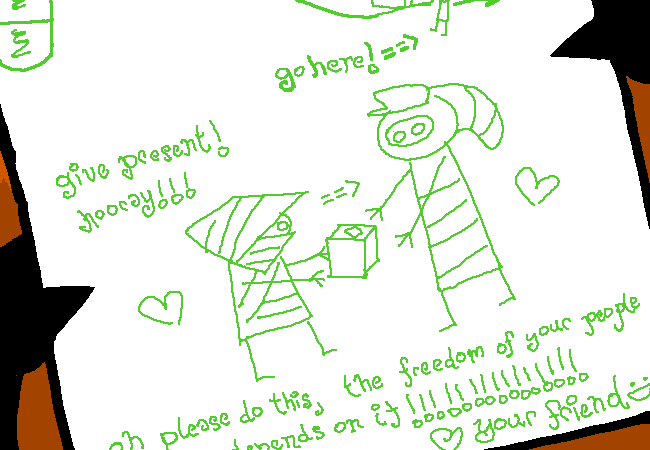 go here!
give present!
hooray!!!
oh please do this, the freedom of your people
depends on it!!!!!!!!!!!!!!!
your friend